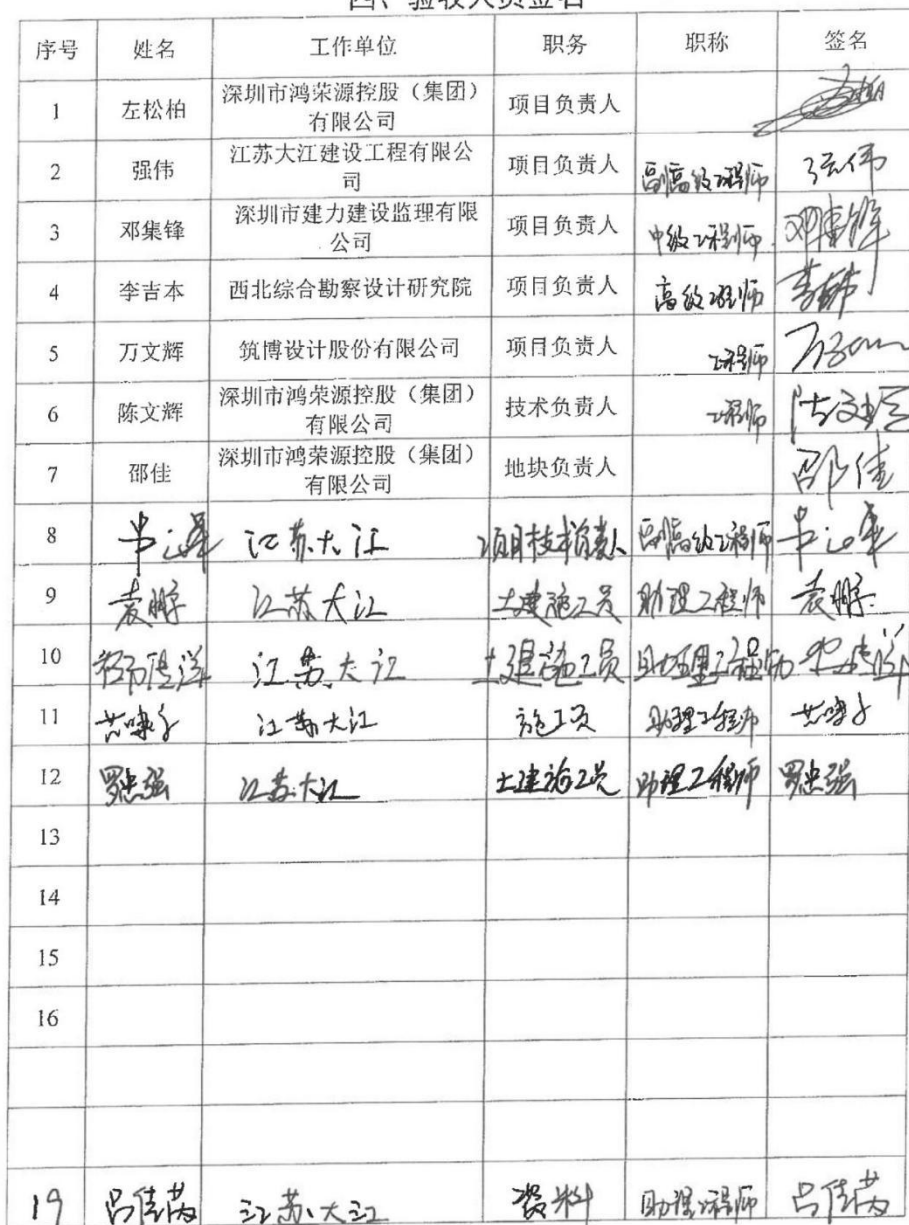 四、验收人员签名
序号 姓名 工作单位 职务 职称 签名
1 左松柏 深圳市鸿荣源控股（集团）有限公司 项目负责人
2 强伟 江苏大江建设工程有限公司 项目负责人 副高级工程师 强伟
3 邓集锋 深圳市建力建设监理有限公司 项目负责人 中级工程师 邓集锋
4 李吉本 西北综合勘察设计研究院 项目负责人 高级工程师
5 万文辉 筑博设计股份有限公司 项目负责人 工程师
6 陈文辉 深圳市鸿荣源控股（集团）有限公司 技术负责人 工程师 陈文辉
7 邵佳 深圳市鸿荣源控股（集团）有限公司 地块负责人 邵佳
8 江苏大江 项目技术负责人 副高级工程师
9 袁鹏 江苏大江 土建施工员 助理工程师 袁鹏
10 江苏大江 土建施工员 助理工程师
11 江苏大江 施工员 助理工程师
12 罗忠强 江苏大江 土建施工员 助理工程师 罗忠强
13
14
15
16
19 江苏大江 资料 助理工程师